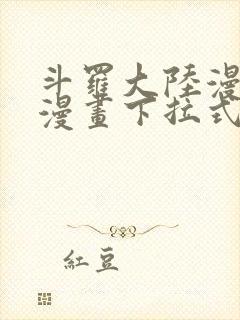 斗羅大陸漫
漫畫下拉式
紅豆